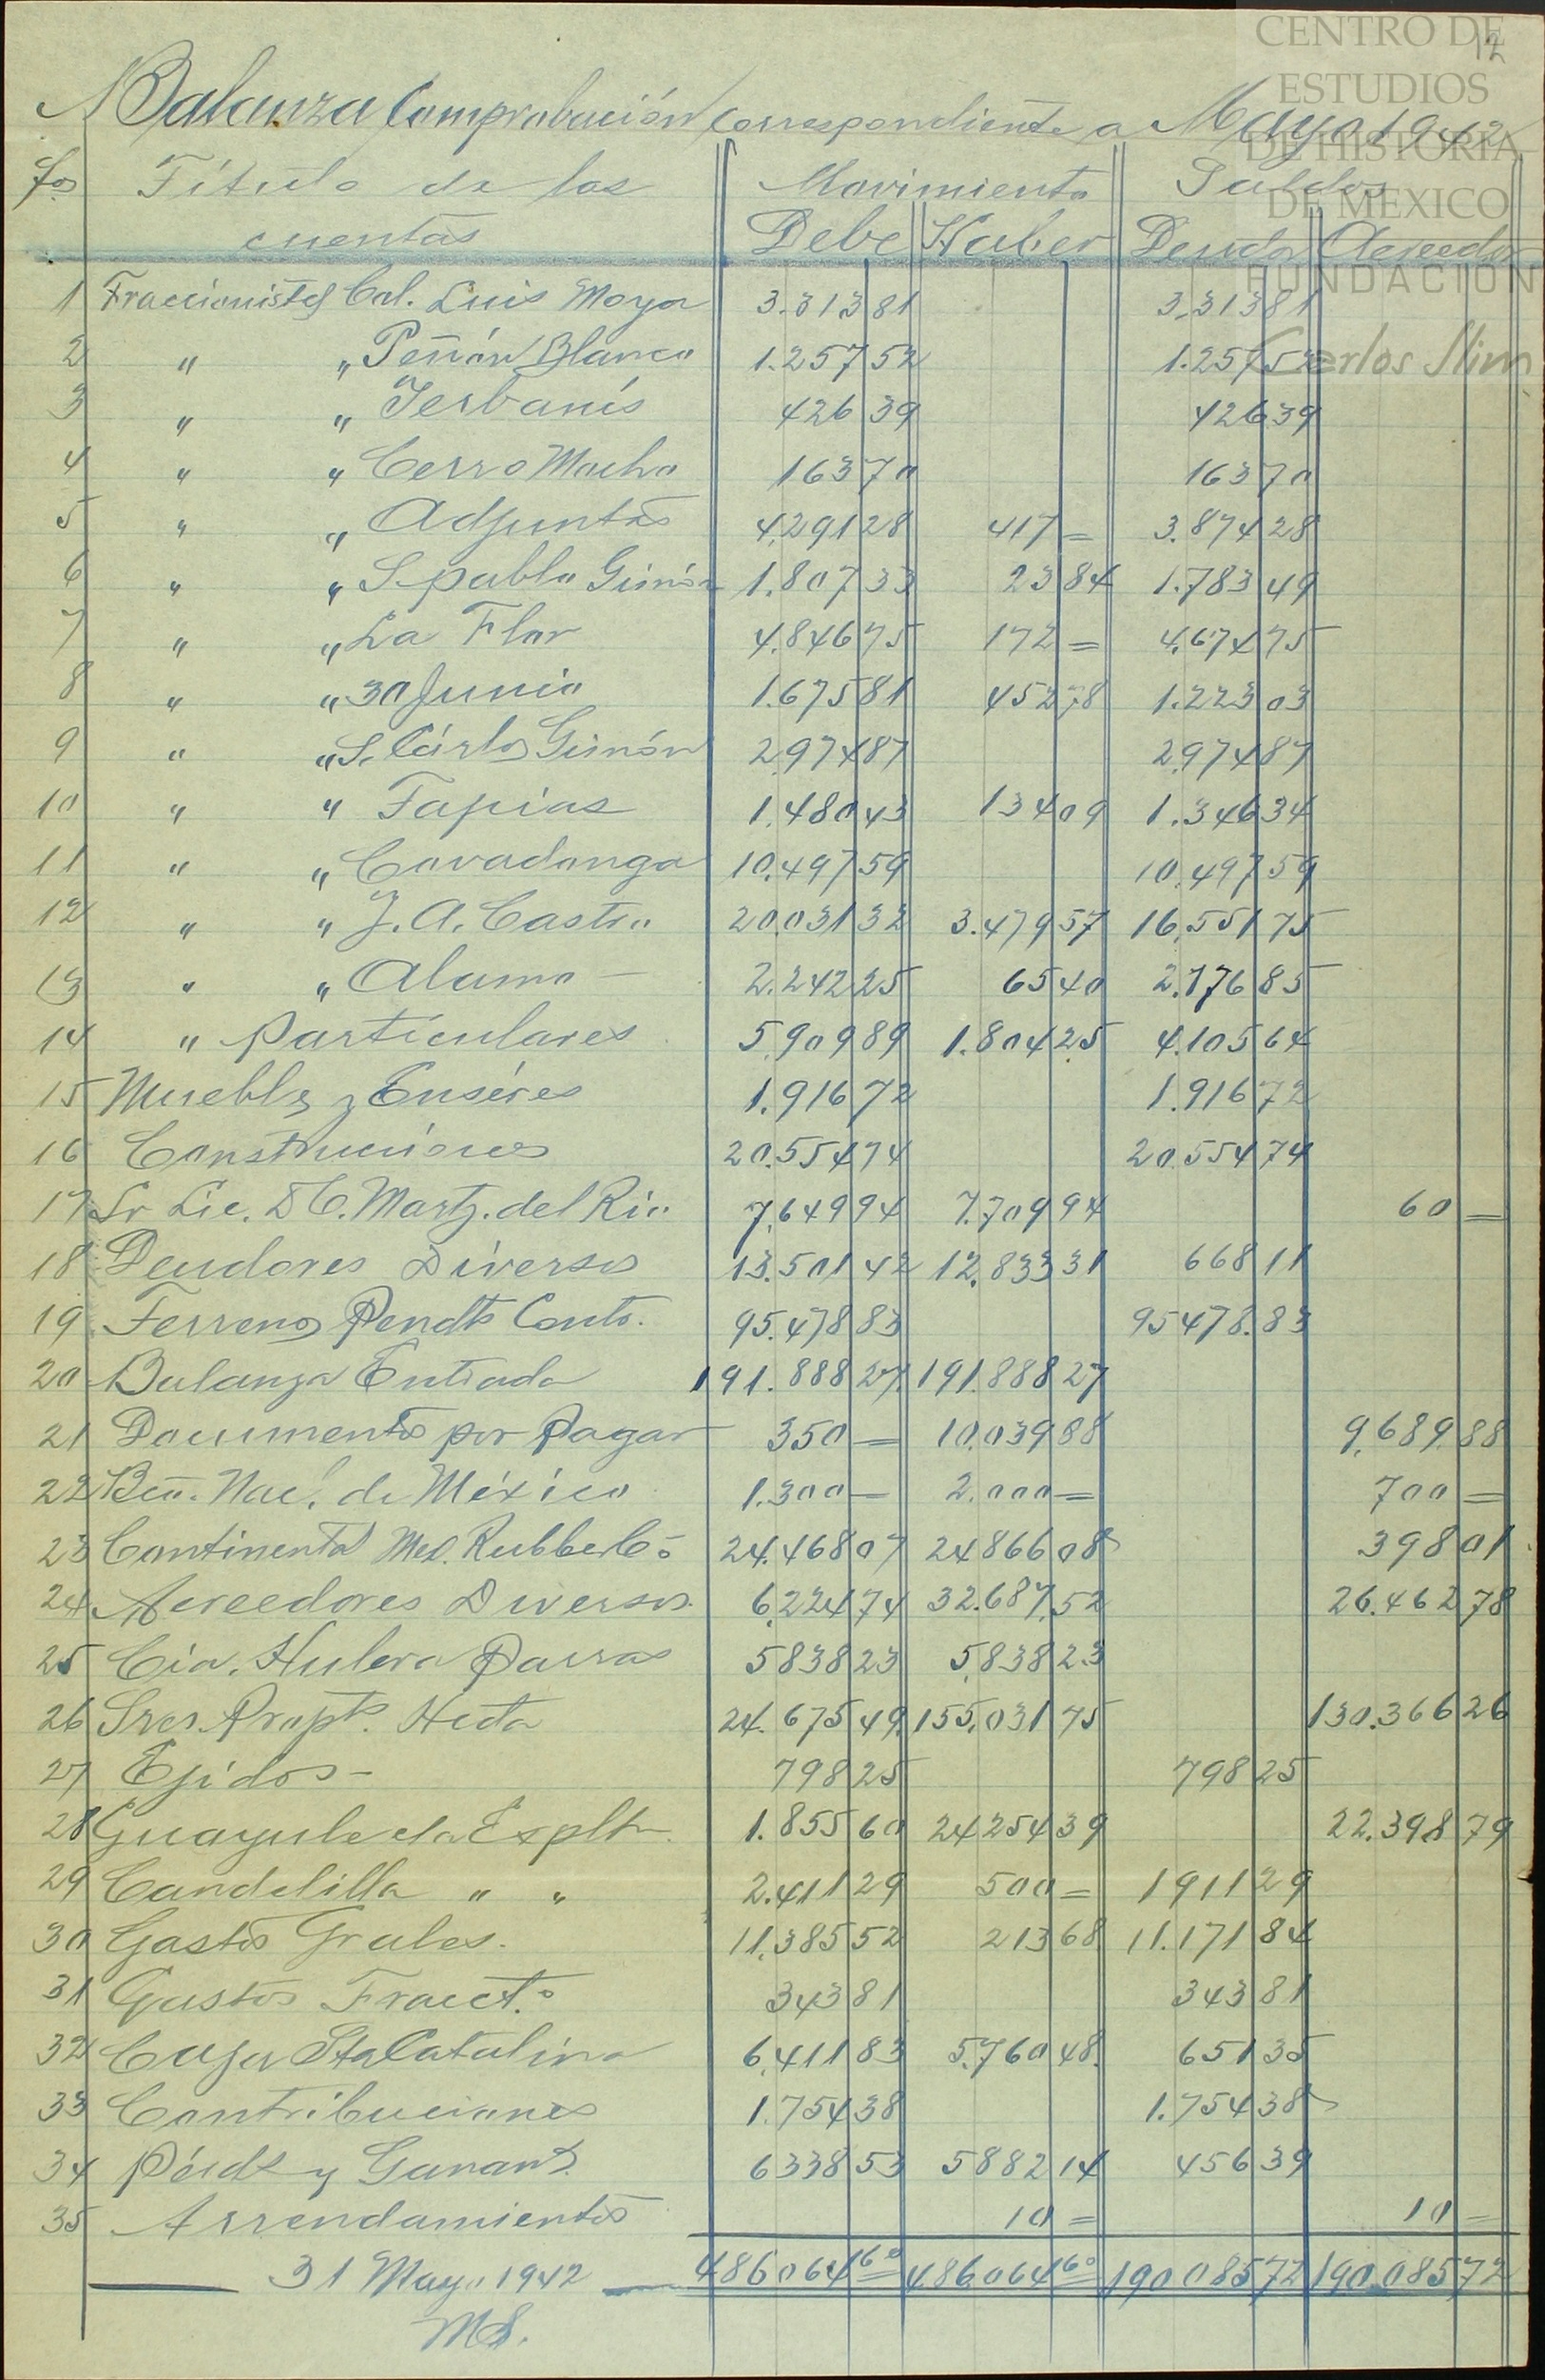 CENTRO DE
ESTUDIOS
DE HISTORIA
DE MEXICO
FUNDACIÓN
Carlos Slim
12
Balanza Comprobación Correspondiente a Mayo 1942
fos Título de las Movimiento Saldos
cuentas Debe Haber Deudor Acreedor
1 Fraccionistas Cal. Luis Moya 3.313 81 3.313 81
2 " " Peñón Blanco 1.257 52 1.257 52
3 " " Yerbanís 426 39 426 39
4 " " Cerro Macho 163 70 163 70
5 " " Adjuntas 4.291 28 417 = 3.874 28
6 " " S. pablo Gimón 1.807 33 23 84 1.783 49
7 " " La Flor 4.846 75 172 = 4.674 75
8 " " 30 Junio 1.675 81 452 78 1.223 03
9 " " S. Cárlos Gimón 2.974 87 2.974 87
10 " " Tapias 1.480 43 134 09 1.346 34
11 " " Covadonga 10.497 59 10.497 59
12 " " J. A. Castro 20.031 32 3.479 57 16.551 75
13 " " Alamo — 2.242 25 65 40 2.176 85
14 " Particulares 5.909 89 1.804 25 4.105 64
15 Muebles y Enséres 1.916 72 1.916 72
16 Construciones 20.554 74 20.554 74
17 Sr Lic. D C. Martz. del Rio 7.649 94 7.709 94 60 =
18 Deudores Diversos 13.501 42 12.833 31 668 11
19 Terrenos Pendts Conto. 95.478 83 95478.83
20 Balanza Entrada 191.888 27 191.888 27
21 Documentos por Pagar 350 = 10.039 88 9.689 88
22 Bco. Nac. de México 1.300 = 2.000 = 700 =
23 Continental Mex. Rubber Co 24.468 07 24866 08 398 01
24 Acreedores Diversos 6.224 74 32.687.52 26.462 78
25 Cia. Hulera Parras 5838 23 5.838 23
26 Sres Propts. Hcda 24.675 49 155.031 75 130.366 26
27 Ejidos — 798 25 798 25
28 Guayule da Explt. 1.855 60 24254 39 22.398 79
29 Candelilla " " 2.411 29 500 = 1911 29
30 Gastos Grales. 11.385 52 213 68 11.171 84
31 Gastos Fracct.o 343 81 343 81
32 Caja Sta Catalina 6.411 83 5.760 48 651 35
33 Contribuciones 1.754 38 1.754 38
34 Pérds y Ganans. 6338 53 5882 14 456 39
35 Arrendamientos 10 = 10 =
31 Mayo 1942 486064 60 486064 60 190085 72 190.085 72